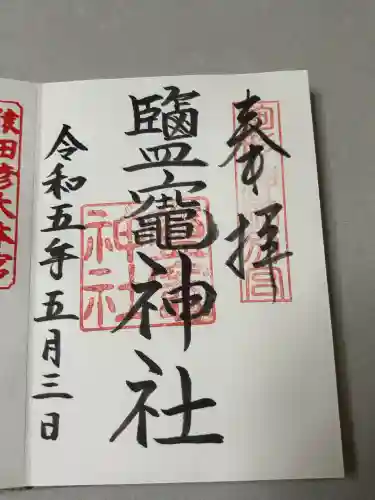 奉拝
鹽竈神社
令和五年五月三日
猿田彦大本宮